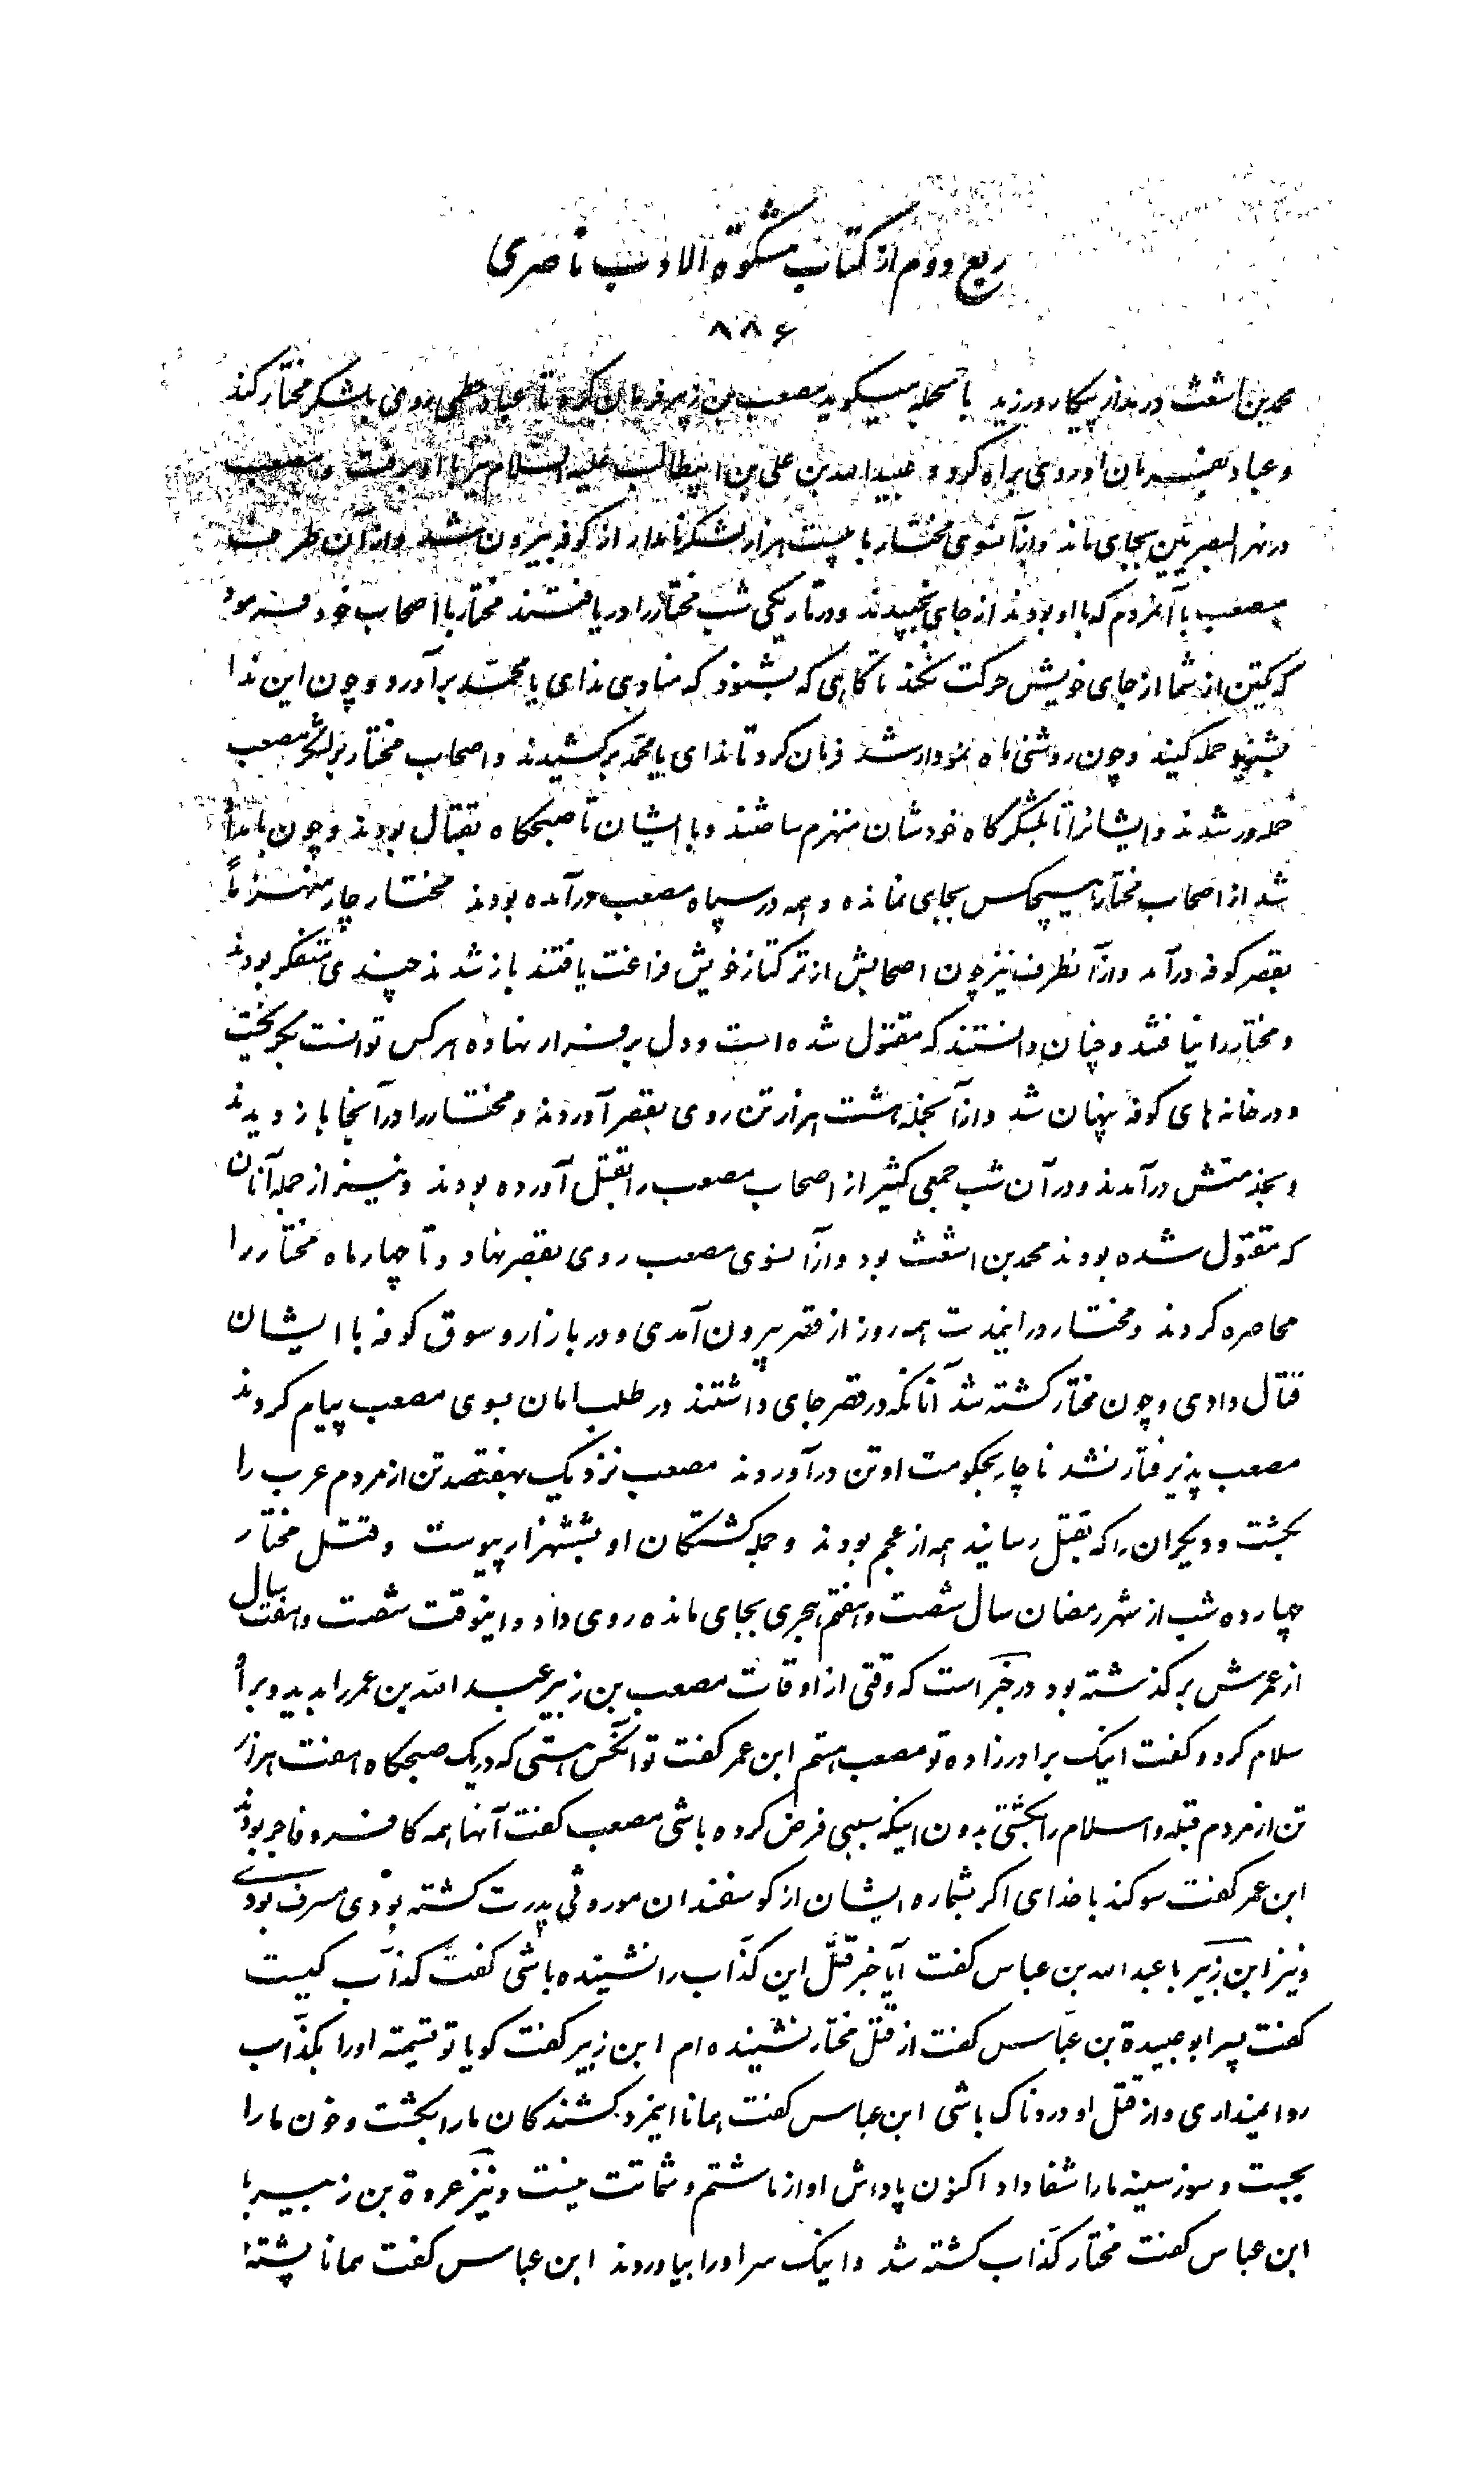 ربع دوم از کتاب مشکوة الادب ناصری
۸۸۶
محمد بن اشعث در مذار پیکار ورزید بالجمله میگوید مصعب بن زبیر فرمان کرد تا عباد حطمی روی بلشکر مختار کند
و عباد بفرمان او روی براه کرد و عبیدالله بن علی بن ابیطالب علیه السلام نیز با او برفت و مصعب
در نهر البصریین بجای ماند و از آنسوی مختار با بیست هزار لشکر نامدار از کوفه بیرون شد و از آن طرف
مصعب با آنمردم که با او بودند از جای بجنبیدند و در تاریکی شب مختار را دریافتند مختار با اصحاب خود فرمود
که یکتن از شما از جای خویش حرکت نکند تا گاهی که بشنود که منادی ندای یا محمد برآورد و چون این ندا
بشنیدید حمله کنید و چون روشنی ماه نمودار شد فرمان کرد تا ندای یا محمد برکشیدند و اصحاب مختار بر لشکر مصعب
حمله ور شدند و ایشانرا تا بلشکرگاه خودشان منهزم ساختند و با ایشان تا صبحگاه بقتال بودند و چون بامداد
شد از اصحاب مختار هیچکس بجای نمانده و همه در سپاه مصعب درآمده بودند مختار چار منهزماً
بقصر کوفه درآمد و از آنطرف نیز چون اصحابش از ترکتاز خویش فراغت یافتند باز شدند چندی متفکر بودند
و مختار را نیافتند و چنان دانستند که مقتول شده است و دل بر فرار نهاده هر کس توانست بگریخت
و در خانه های کوفه پنهان شد و از آنجمله هشت هزار تن روی بقصر آوردند و مختار را در آنجا باز دیدند
و بخدمتش درآمدند و در آن شب جمعی کثیر از اصحاب مصعب را بقتل آورده بودند و نیز از جمله آنان
که مقتول شده بودند محمد بن اشعث بود و از آنسوی مصعب روی بقصر نهاد و تا چهار ماه مختار را
محاصره کردند و مختار در اینمدت همه روز از قصر بیرون آمدی و در بازار و سوق کوفه با ایشان
قتال دادی و چون مختار کشته شد آنانکه در قصر جای داشتند در طلب امان بسوی مصعب پیام کردند
مصعب پذیرفتار نشد ناچار بحکومت او تن درآوردند مصعب نزدیک بهفتصد تن از مردم عرب را
بکشت و دیگران را که بقتل رسانید همه از عجم بودند و جمله کشتگان او بششهزار پیوست و قتل مختار
چهارده شب از شهر رمضان سال شصت و هفتم هجری بجای مانده روی داد و اینوقت شصت و هفت سال
از عمرش برگذشته بود در خبر است که وقتی از اوقات مصعب بن زبیر عبد الله بن عمر را بدید و بر او
سلام کرد و گفت اینک برادر زاده تو مصعب هستم ابن عمر گفت تو آنکس هستی که در یک صبحگاه هفت هزار
تن از مردم قبله و اسلام را بکشتی بدون اینکه سببی فرض کرده باشی مصعب گفت آنها همه کافر و فاجر بودند
ابن عمر گفت سوگند با خدای اگر بشماره ایشان از گوسفندان موروثی پدرت کشته بودی مسرف بودی
و نیز ابن زبیر با عبد الله بن عباس گفت آیا خبر قتل این کذاب را نشنیده باشی گفت کذاب کیست
گفت پسر ابو عبیدة بن عباس گفت از قتل مختار نشنیده ام ابن زبیر گفت گویا تو تسمیه او را بکذاب
روا نمیداری و از قتل او دردناک باشی ابن عباس گفت همانا اینمرد کشندگان ما را بکشت و خون ما را
بجست و سوز سینه ما را شفا داد اکنون پاداش او از ما شتم و شماتت نیست و نیز عروة بن زبیر با
ابن عباس گفت مختار کذاب کشته شد و اینک سر او را بیاوردند ابن عباس گفت همانا پشتهٔ